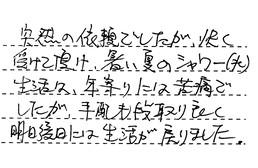 突然の依頼でしたが、快く
受けて頂け、暑い夏のシャワー(水)
生活は、年寄りには苦痛で
したが、手配も段取り良く
明後日には生活が戻りました。